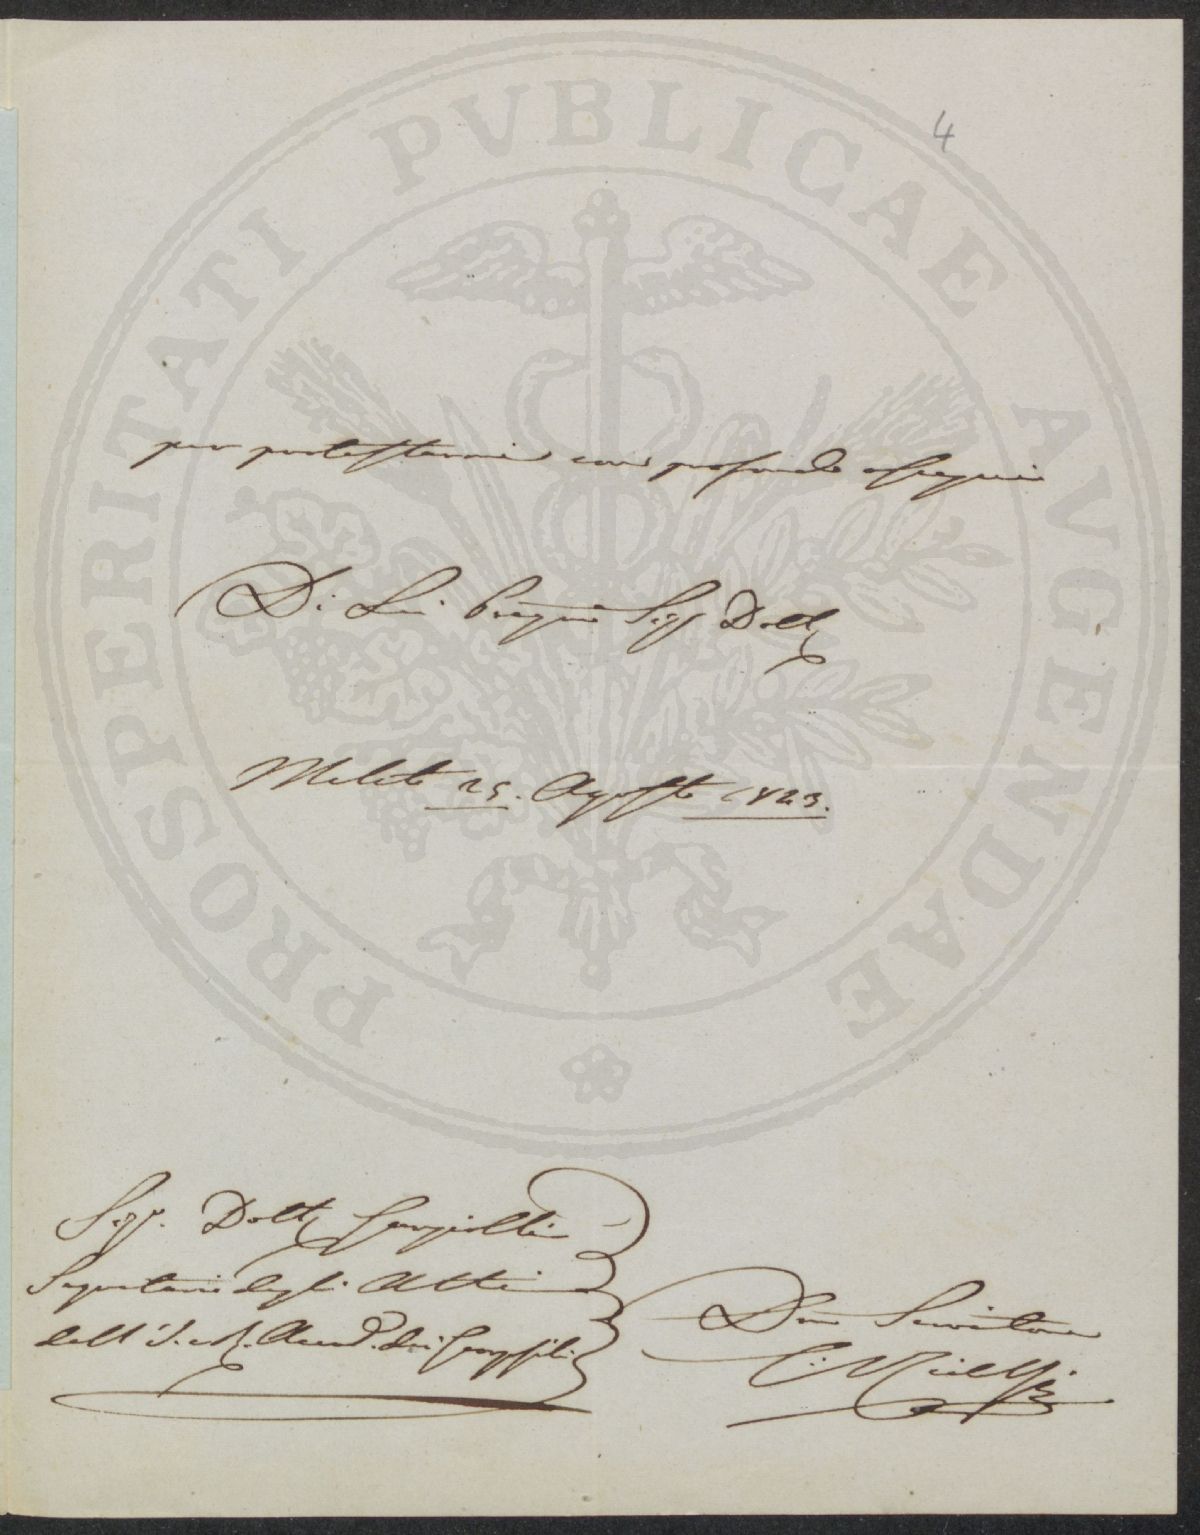 PROSPERITATI PVBLICAE AVGENDAE
4
per protestarmi con profondo ossequio
Di Lei Pregmo Sigr Dott
Meleto 25. Agosto 1823.
Sigr. Dott
Segretario degli Atti
dell' I. e R. Accad. dei Georgofili
Dmo Servitore
C. Ridolfi